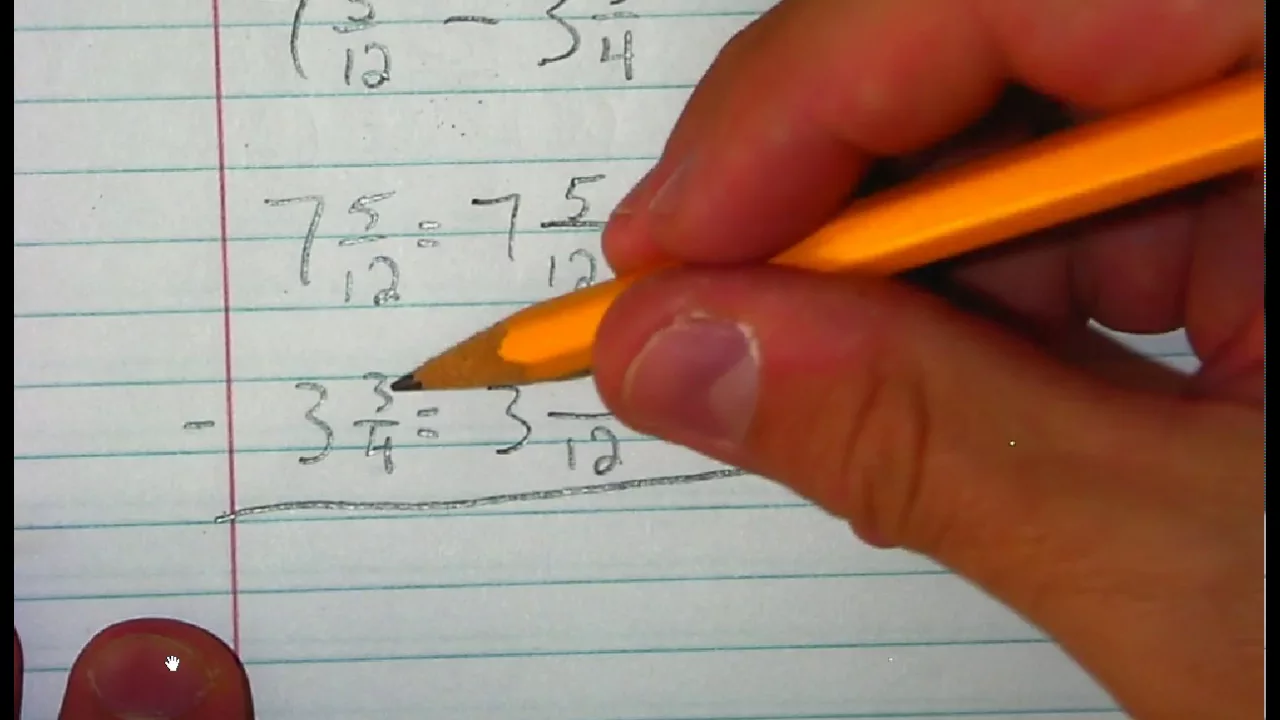 7 5/12 - 3 3/4
7 5/12 = 7 5/12
- 3 3/4 = 3 /12